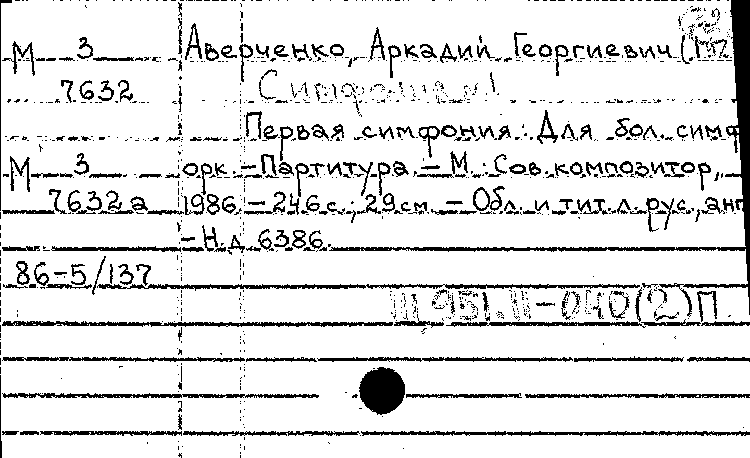 М 3 Аверченко, Аркадий Георгиевич
7632 Симфония №1
Первая симфония: Для бол. симф
М 3 орк. – Партитура. – М.: Сов. композитор,
7632а 1986. – 246 с.; 29 см. – Обл. и тит. л. рус., анг
– Н.д. 6386.
86-5/137
III 951.II-040(2)П